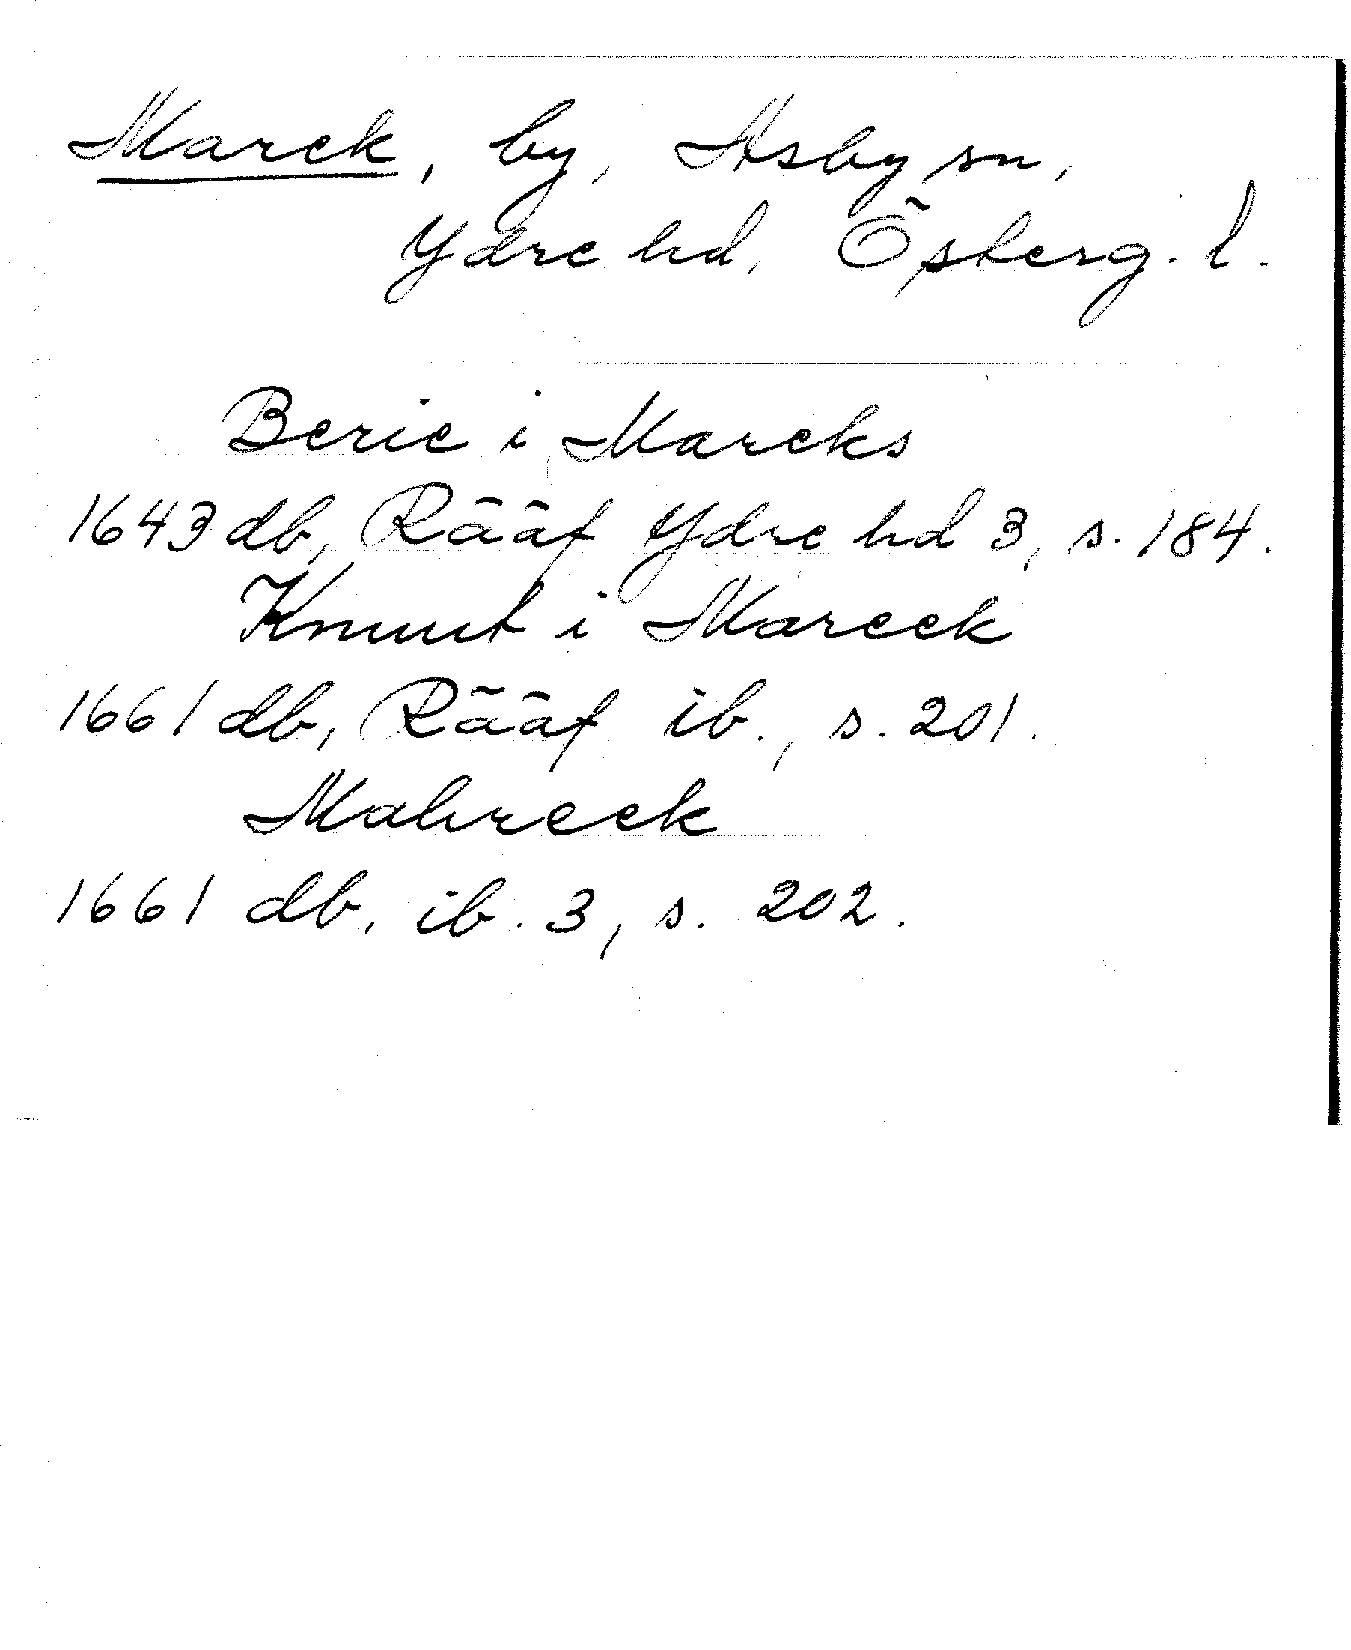 Marek, by, Asby sn,
Ydre hd, Österg. l.
Berie i Mareks
1643 db, Rääf Ydre hd 3, s. 184.
Knuut i Mareek
1661 db, Rääf ib., s. 201.
Mahreek
1661 db, ib. 3, s. 202.